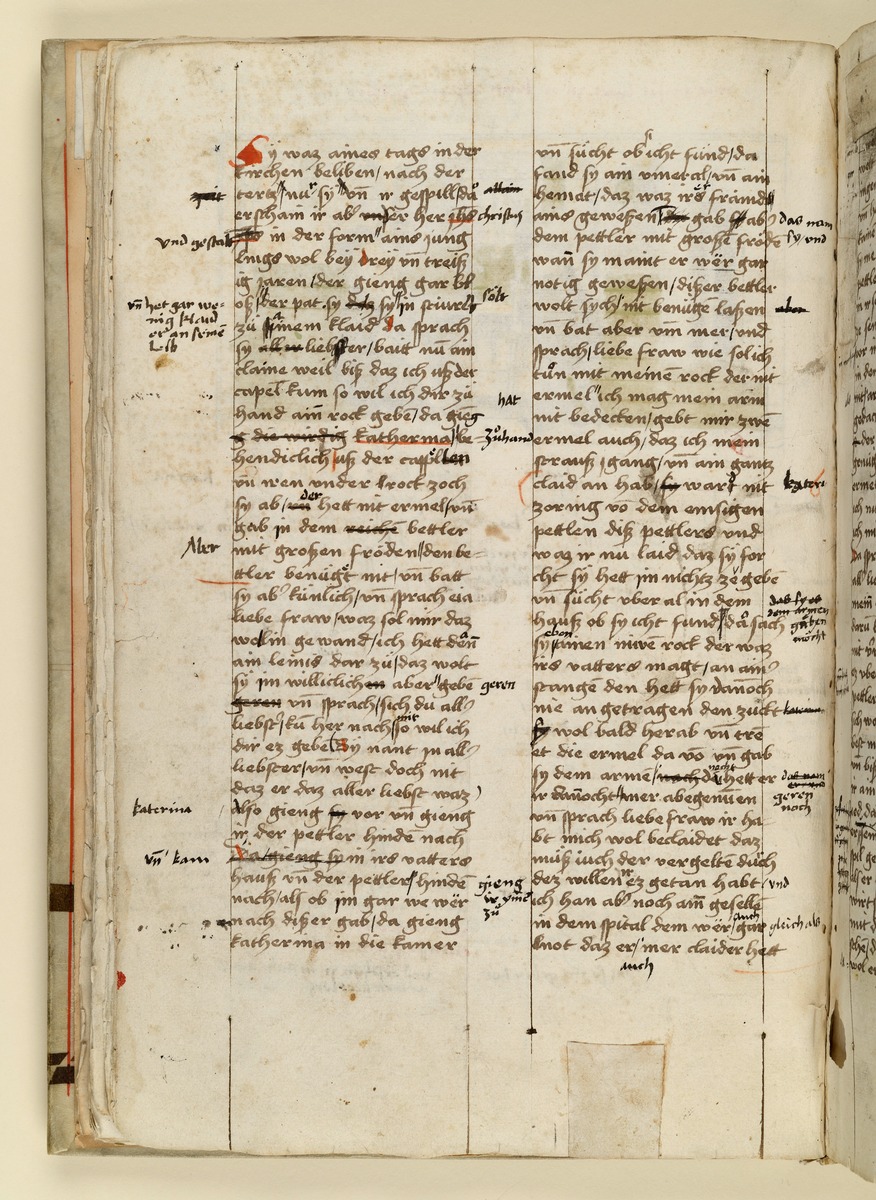 Sy waz aines tags in der
kirchen beliben / nach der
tertz / nur sy vn̄ ir gespilly da
erschain ir ab' unser her jhs
in der form ains jung
lings wol bey drey vn̄ treiß
ig jaren / der gieng gar bl
oß / der pat sy daz sy in stiurty
zů ainem klaid da sprach
sy aller liebster / baitt nū ain
claine weil biß daz ich uß der
capel kum so wil ich dir zů
hand ain rock gebē / da gieng
die wirdig katherina / be
hendiclich uß der cappellen
vn̄ iren under rock zoch
sy ab / der hett nit ermel / vn̄
gab in dem reichē bettler
mit großen fröden / den be-
ttler benügt nit / vn̄ batt
sy ab' künlich / vn̄ sprach eia
liebe fraw / waz sol mir daz
wolin gewand / ich hett denn
ain leinis dar zů / daz wolt
sy im williclichen aber gebē
geren vn̄ sprach / sich du all'
liebst' / kū her nach / so wil ich
dir ez gebē / Sy nant in all'
liebster / vn̄ west doch nit
daz er daz aller liebst waz
Also gieng sy vor vn̄ gieng
ir der pettler hindē nach
Da gieng sy in irs vatters
hauß vn̄ der pettler hindē
nach / als ob im gar we wer
nach dißer gab / da gieng
katherina in die kamer
christus
vnd gestalt
vn̄ het gar we-
nig klaid
er an seinē
leib
sölt
hat
zůhand
Aber
geren
katerina
vn̄ kam
gieng
ir ymē
zů
vn̄ sücht ob icht fund / da
fand sy ain vmetal / vn̄ ain
hemat / daz waz irs främd
ains gewessen / gab ab'
dem pettler mit großē fröde
wan̄ sy maint er wër gar
notig gewessen / dißer bettler
wolt sych nit benügen laßen
vn̄ bat aber vm̄ mer / vnd
sprach / liebe fraw wie sol ich
tůn mit meinē rock der nit
ermel ich mag mein arm
nit bedecken / gebt mir zwē
ermel auch / daz ich mein
strauß gang / vn̄ ain gantz
claid an hab / sy wart nit
zoring vō dem emsigen
pettlen diß pettlers vnd
waz ir nū laid daz sy for
cht sy hett im nichtz ze gebē
vn̄ sücht vber al in dem
hauß ob sy icht fund / da sach
sy ainen niwē rock der waz
irs vatters magt / an ain'
stangē den hett sy dan̄och
nie an getragen den zuckt
sy wol bald herab vn̄ tre
et die ermel da vō vn̄ gab
sy dem armē / nach dē hett er
ir dan̄ocht mer abegenūen
vn̄ sprach liebe fraw ir ha
bt mich wol beclaidet daz
müß iuch der vergelte duch
dez willen ez getan habt /
ich han ab' noch ain̄ gesellē
in dem spital dem wër / gar
not daz er / mer claider hett
auch
das nam
sy vnd
das sy et
dem armen
geben
möcht
geren
noch
vnd
gleich als